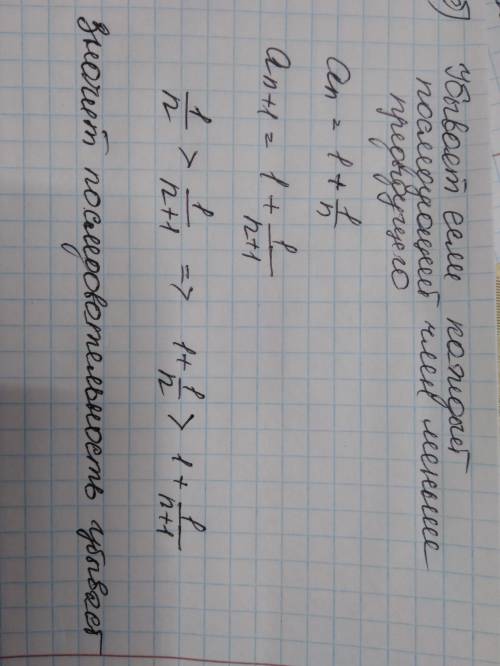 б) Убывает если каждый
последующий член меньше
предыдущего
an = 1 + 1/n
an+1 = 1 + 1/n+1
1/n > 1/n+1 => 1 + 1/n > 1 + 1/n+1
значит последовательность убывает